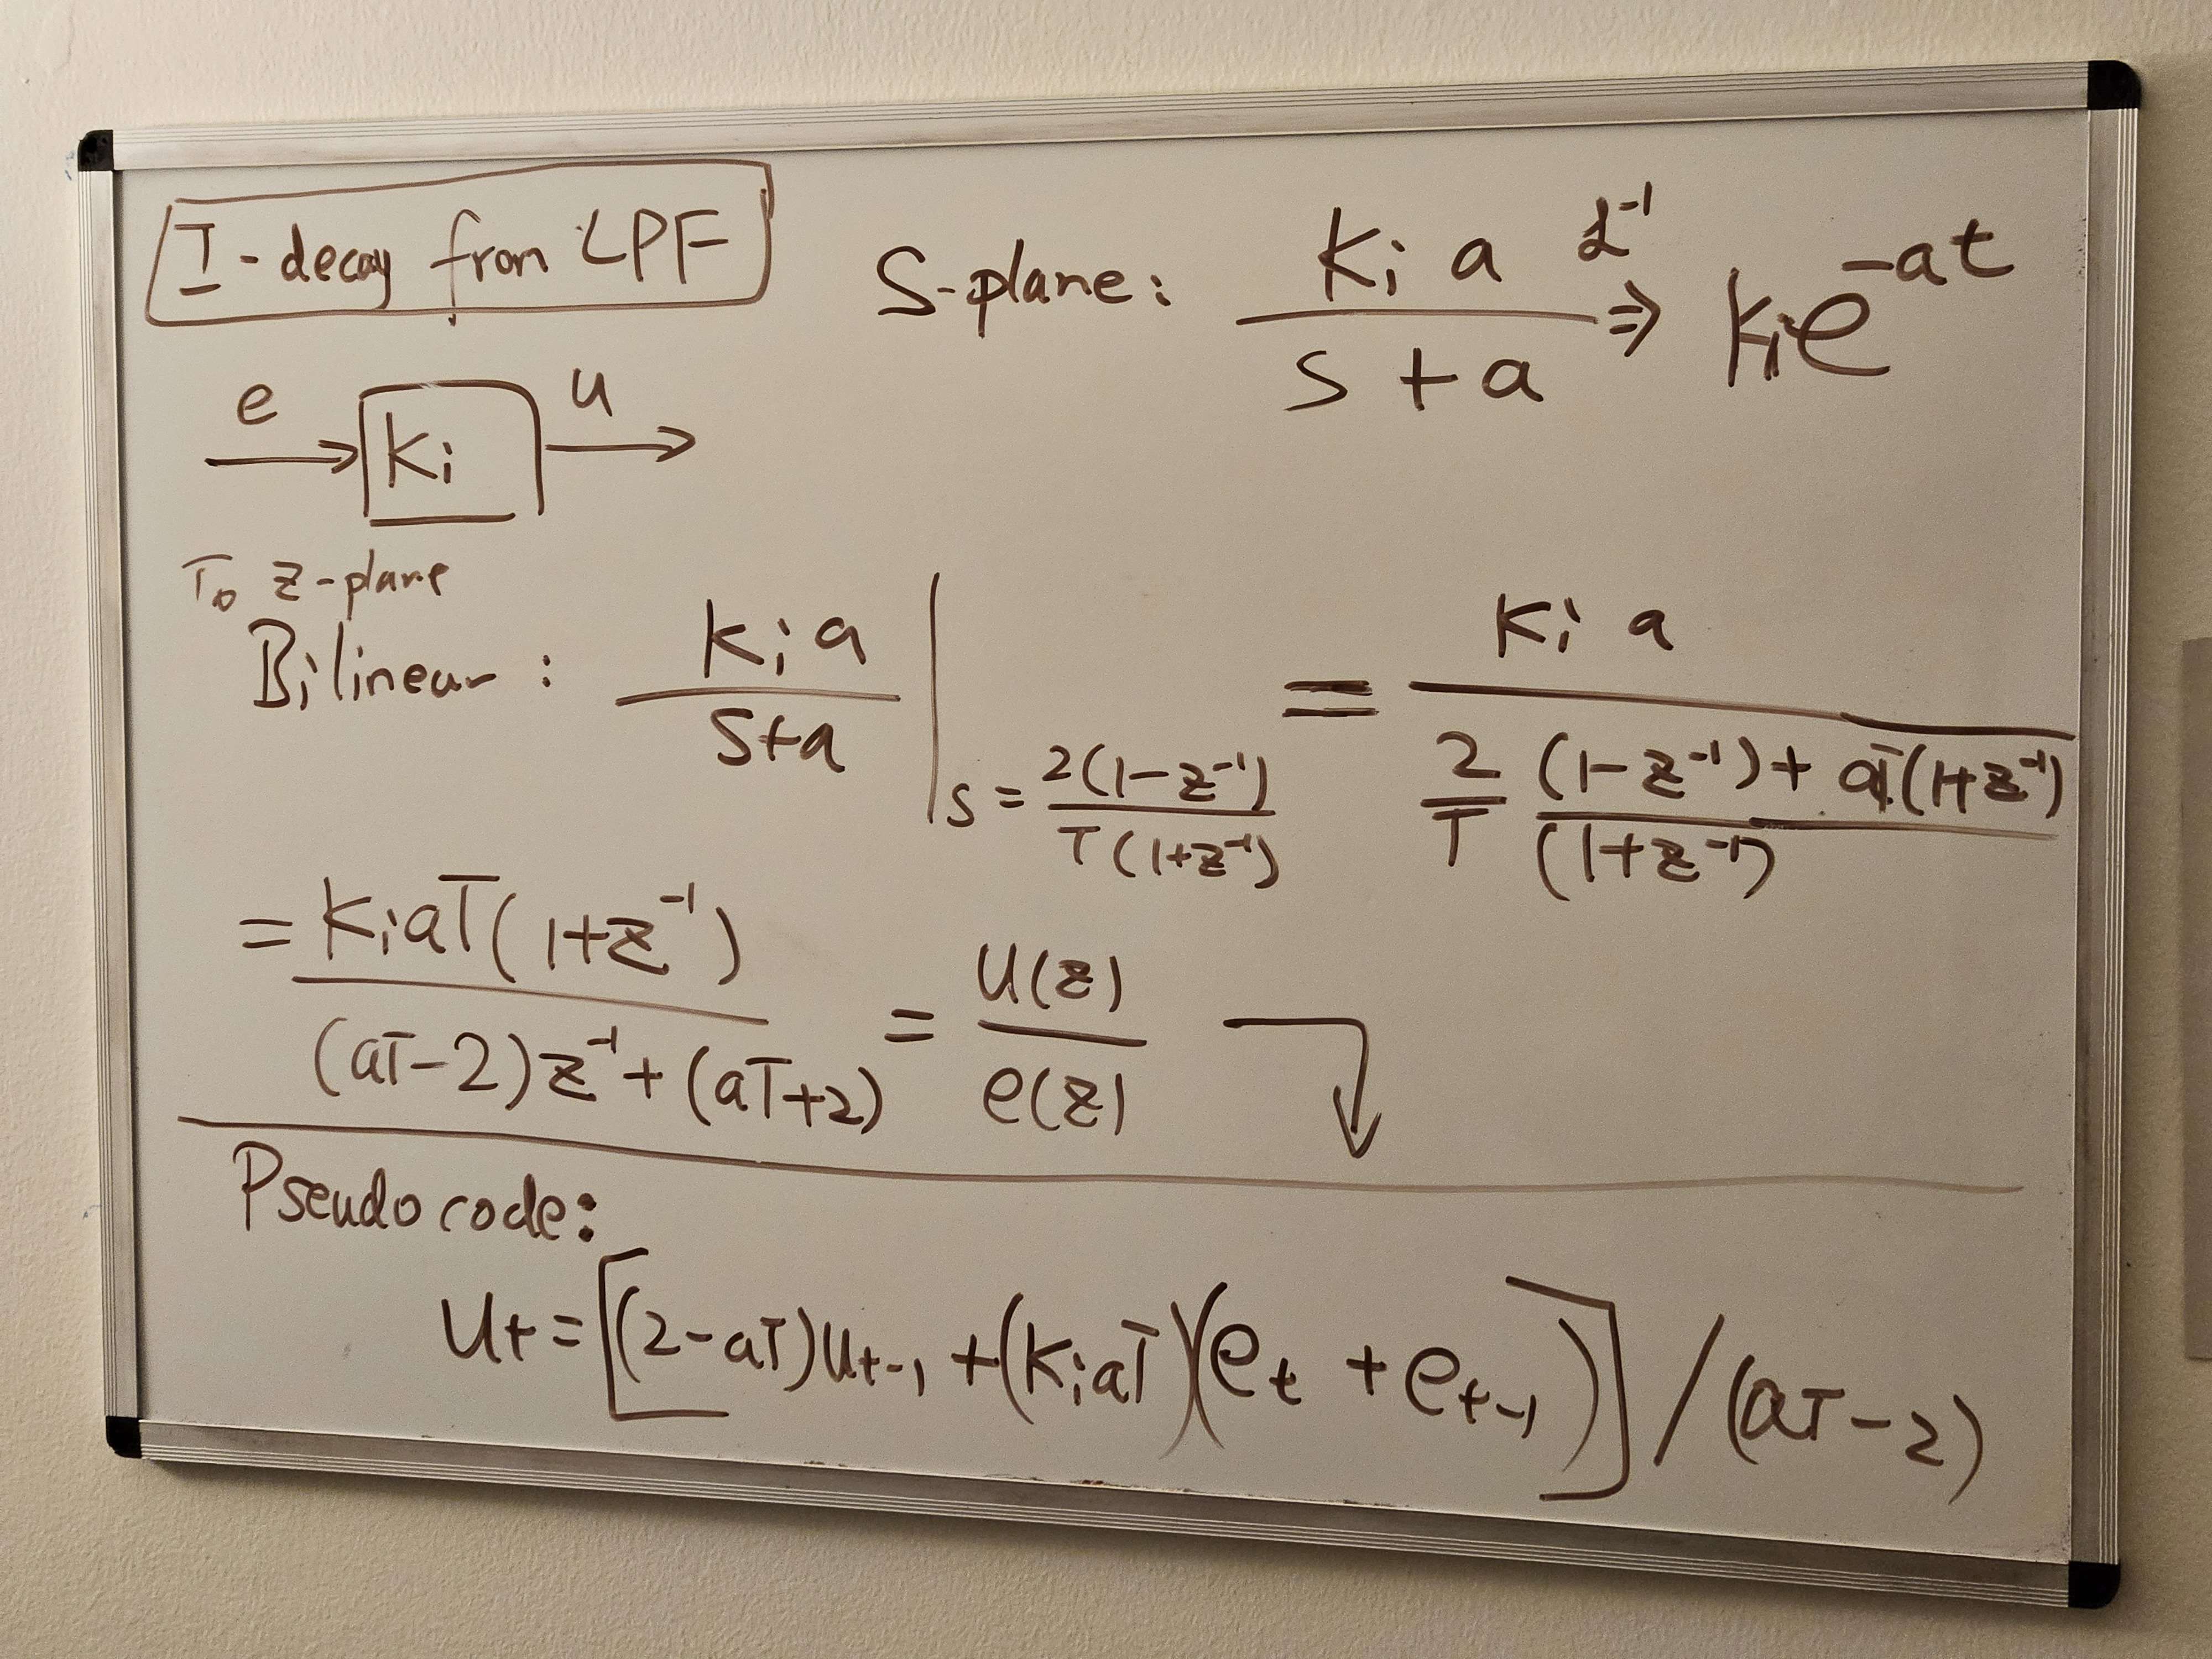 I-decay from LPF
S-plane: Ki a / (s + a) ℒ⁻¹ ⇒ Ki e^(-at)
e → Ki u →
To z-plane
Bilinear: Ki a / (s+a) | s = 2(1-z⁻¹) / T(1+z⁻¹) = Ki a / (2/T (1-z⁻¹) + aT(1+z⁻¹) / (1+z⁻¹))
= KiaT(1+z⁻¹) / ((aT-2)z⁻¹ + (aT+2)) = U(z) / e(z)
Pseudo code:
Ut = [(2-aT)Ut-1 + (KiaT)(et + et-1)] / (aT-2)